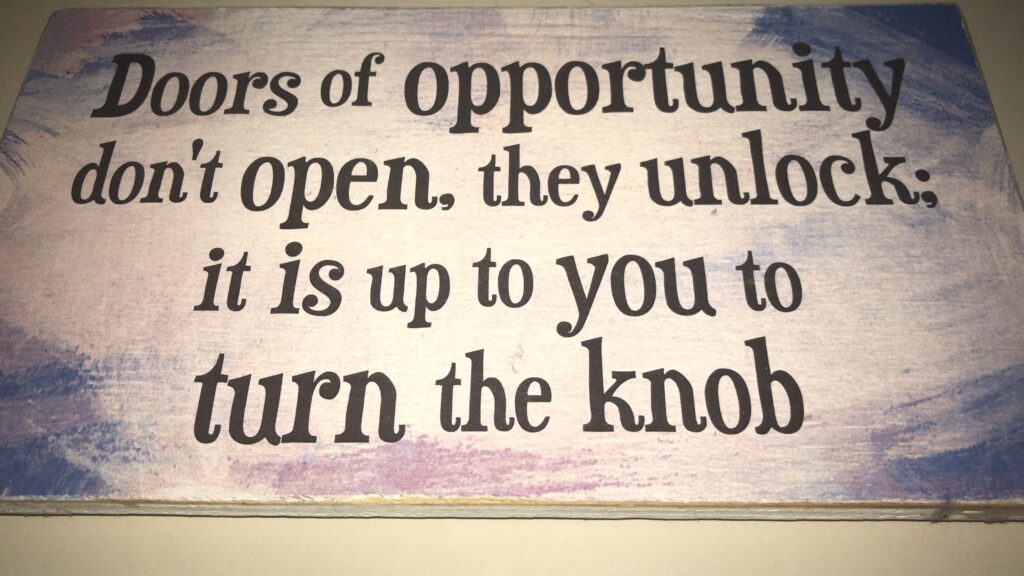 Doors of opportunity
don't open, they unlock;
it is up to you to
turn the knob